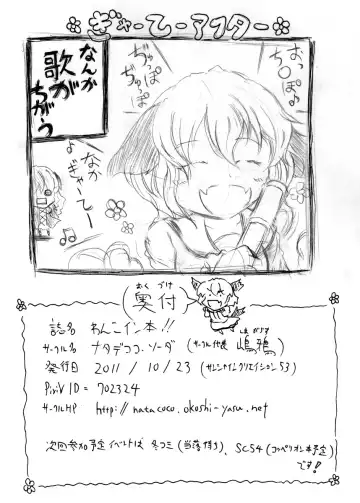 ぎゃーてーアフター
なんか
歌が
ちがう
ぢゅっぽ
ぢゅっぽ
なか
よ
ぎゃーてー
おく づけ
奥付
誌名 わんこイン本!!
サークル名 ナタデココ・ソーダ (サークル代表 嶋鴉)
発行日 2011/10/23 (サンシャインクリエイション53)
PixiV ID = 702324
サークルHP http://natacoco.okoshi-yasu.net
次回参加予定イベントは 冬コミ(当落待ち)、SC54(コッペリオン本予定)
です!